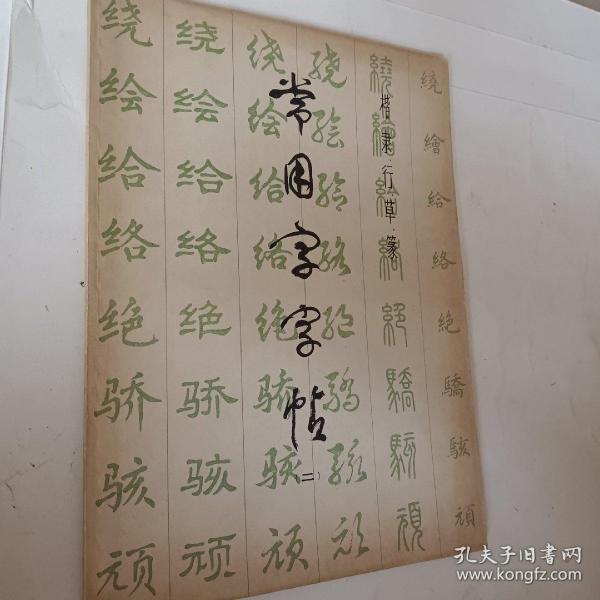 常用字字帖
(二)
楷.隶.行.草.篆
绕绘给络绝骄骇顽
绕绘给络绝骄骇顽
绕绘给络绝骄骇顽
绕绘给络绝骄骇顽
繞繪給絡絕驕駭頑
繞繪給絡絶驕駭頑
孔夫子旧书网
www.kongfz.com